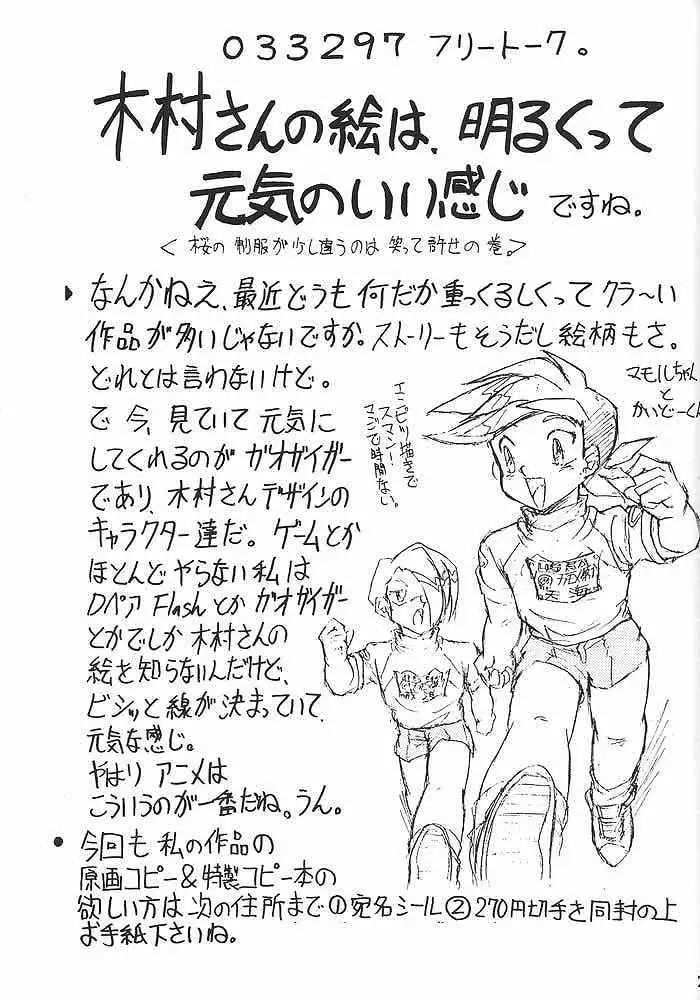 033297 フリートーク。
木村さんの絵は、明るくって
元気のいい感じですね。
<桜の制服が少し違うのは笑って許せの巻。>
なんかねえ、最近どうも何だか重っくるしくってクラ〜い
作品が多いじゃないですか。ストーリーもそうだし絵柄もさ。
どれとは言わないけど。
で今、見ていて元気に
してくれるのがガオガイガー
であり、木村さんデザインの
キャラクター達だ。ゲームとか
ほとんどやらない私は
DペアFlashとかガオガイガー
とかでしか木村さんの
絵を知らないんだけど、
ビシッと線が決まっていて、
元気な感じ。
やはりアニメは
こういうのが一番だね。うん。
マモルちゃん
と
かいどーくん
エンピツ描きで
スマン!
マジで時間ない。
• 今回も私の作品の
原画コピー&特製コピー本の
欲しい方は次の住所まで①宛名シール②270円切手を同封の上
お手紙下さいね。